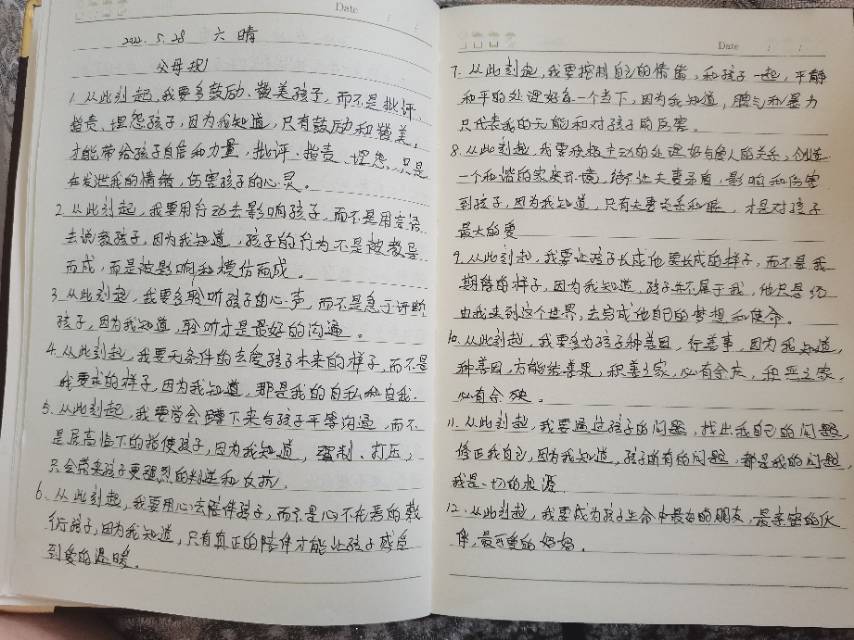 Date
2022.5.28 六 晴
父母规
1. 从此刻起,我要多鼓励、赞美孩子,而不是批评、
指责、埋怨孩子,因为我知道,只有鼓励和赞美,
才能带给孩子自信和力量,批评、指责、埋怨、只是
在发泄我的情绪,伤害孩子的心灵。
2. 从此刻起,我要用行动去影响孩子,而不是用言语
去说教孩子,因为我知道,孩子的行为不是被教导
而成,而是被影响和模仿而成。
3. 从此刻起,我要多聆听孩子的心声,而不是急于评断
孩子,因为我知道,聆听才是最好的沟通。
4. 从此刻起,我要无条件的去爱孩子本来的样子,而不是
我要求的样子,因为我知道,那是我的自私和自我.
5. 从此刻起,我要学会蹲下来与孩子平等沟通,而不
是居高临下的指使孩子,因为我知道,强制、打压,
只会带来孩子更强烈的叛逆和反抗.
6. 从此刻起,我要用心去陪伴孩子,而不是心不在焉的敷
衍孩子,因为我知道,只有真正的陪伴才能让孩子感受
到爱的温暖.
Date
7. 从此刻起,我要控制自己的情绪,和孩子一起,平静
和平的处理好每一个当下,因为我知道,脾气和暴力
只代表我的无能和对孩子的伤害.
8. 从此刻起,我要积极主动的处理好与爱人的关系,创造
一个和谐的家庭环境,绝不让夫妻矛盾,影响和伤害
到孩子,因为我知道,只有夫妻关系和睦,才是对孩子
最大的爱
9. 从此刻起,我要让孩子长成他要长成的样子,而不是我
期待的样子,因为我知道,孩子并不属于我,他只是经
由我来到这个世界,去完成他自己的梦想和使命。
10. 从此刻起,我要多为孩子种善因,行善事,因为我知道,
种善因,方能结善果,积善之家,必有余庆,积恶之家,
必有余殃。
11. 从此刻起,我要通过孩子的问题,找出我自己的问题,
修正我自己,因为我知道,孩子所有的问题,都是我的问题,
我是一切的根源
12. 从此刻起,我要成为孩子生命中最好的朋友,最亲密的伙
伴,最可爱的妈妈。